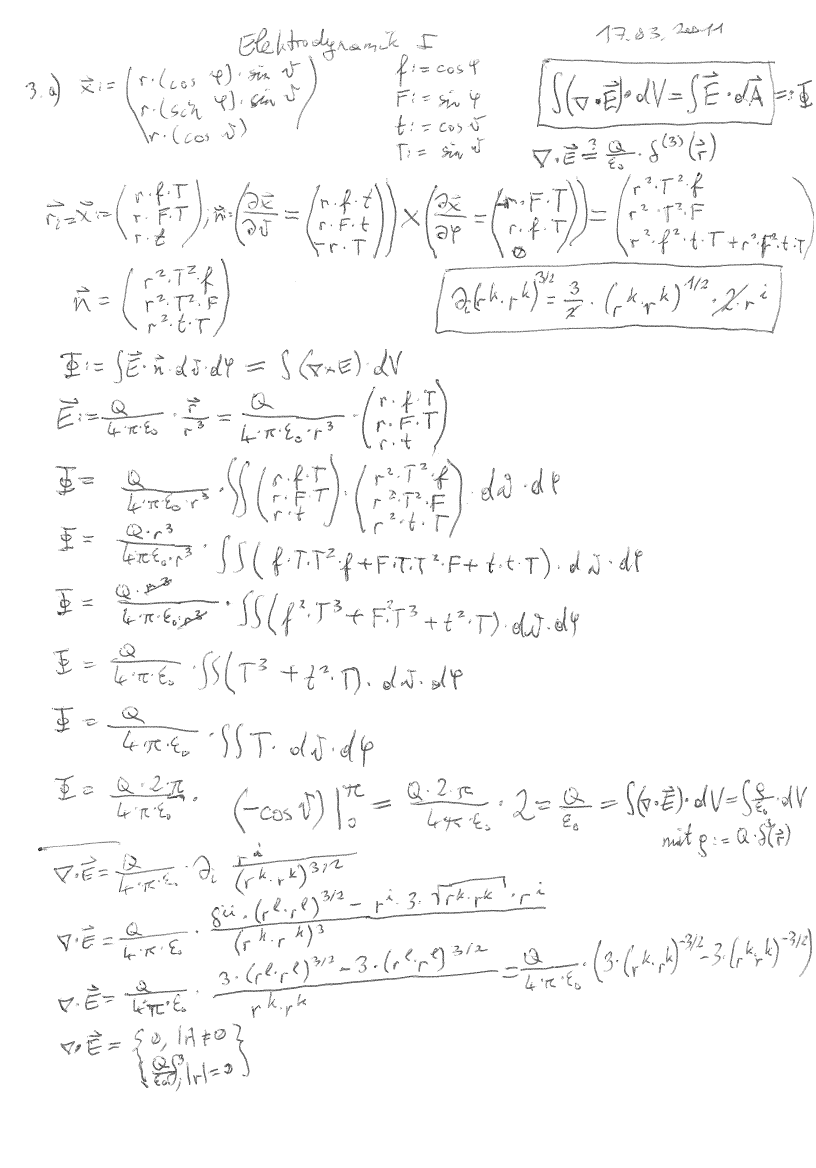 Elektrodynamik I 17.03.2011
3.a) x⃗ := (r·(cos φ)·sin ϑ; r·(sin φ)·sin ϑ; r·(cos ϑ)) f := cos φ F := sin φ t := cos ϑ T := sin ϑ ∫(∇·E⃗)·dV = ∫E⃗·dA⃗ =: Φ
∇·E⃗ ≟ Q/ε₀ · δ⁽³⁾(r⃗)
r⃗ := x⃗ := (r·f·T; r·F·T; r·t); n⃗ := (∂x⃗/∂ϑ = (r·f·t; r·F·t; -r·T)) × (∂x⃗/∂φ = (-r·F·T; r·f·T; 0)) = (r²·T²·f; r²·T²·F; r²·f²·t·T + r²·F²·t·T)
n⃗ = (r²·T²·f; r²·T²·F; r²·t·T) ∂ᵢ(rᵏ·rᵏ)^3/2 = 3/2 · (rᵏ·rᵏ)^1/2 · 2·rⁱ
Φ := ∫E⃗·n⃗·dϑ·dφ = ∫(∇×E)·dV
E⃗ := Q/(4·π·ε₀) · r⃗/r³ = Q/(4·π·ε₀·r³) · (r·f·T; r·F·T; r·t)
Φ = Q/(4·π·ε₀·r³) · ∫∫(r·f·T; r·F·T; r·t)·(r²·T²·f; r²·T²·F; r²·t·T)·dϑ·dφ
Φ = Q·r³/(4πε₀·r³) · ∫∫(f·T·T²·f + F·T·T²·F + t·t·T)·dϑ·dφ
Φ = Q·r³/(4·π·ε₀·r³) · ∫∫(f²·T³ + F²·T³ + t²·T)·dϑ·dφ
Φ = Q/(4·π·ε₀) · ∫∫(T³ + t²·T)·dϑ·dφ
Φ = Q/(4·π·ε₀) · ∫∫T·dϑ·dφ
Φ = Q·2·π/(4·π·ε₀) · (-cos ϑ)|₀^π = Q·2·π/(4·π·ε₀) · 2 = Q/ε₀ = ∫(∇·E⃗)·dV = ∫ρ/ε₀·dV
mit ρ := Q·δ³(r⃗)
∇·E⃗ = Q/(4·π·ε₀) · ∂ᵢ rⁱ/(rᵏ·rᵏ)^3/2
∇·E⃗ = Q/(4·π·ε₀) · (δⁱⁱ·(rˡ·rˡ)^3/2 − rⁱ·3·√(rᵏ·rᵏ)·rⁱ)/(rᵏ·rᵏ)³
∇·E⃗ = Q/(4·π·ε₀) · (3·(rˡ·rˡ)^3/2 − 3·(rˡ·rˡ)^3/2)/(rᵏ·rᵏ) = Q/(4·π·ε₀) · (3·(rᵏ·rᵏ)^-3/2 − 3·(rᵏ·rᵏ)^-3/2)
∇·E⃗ = {0, |r|≠0
Q/ε₀ δ³, |r|=0}